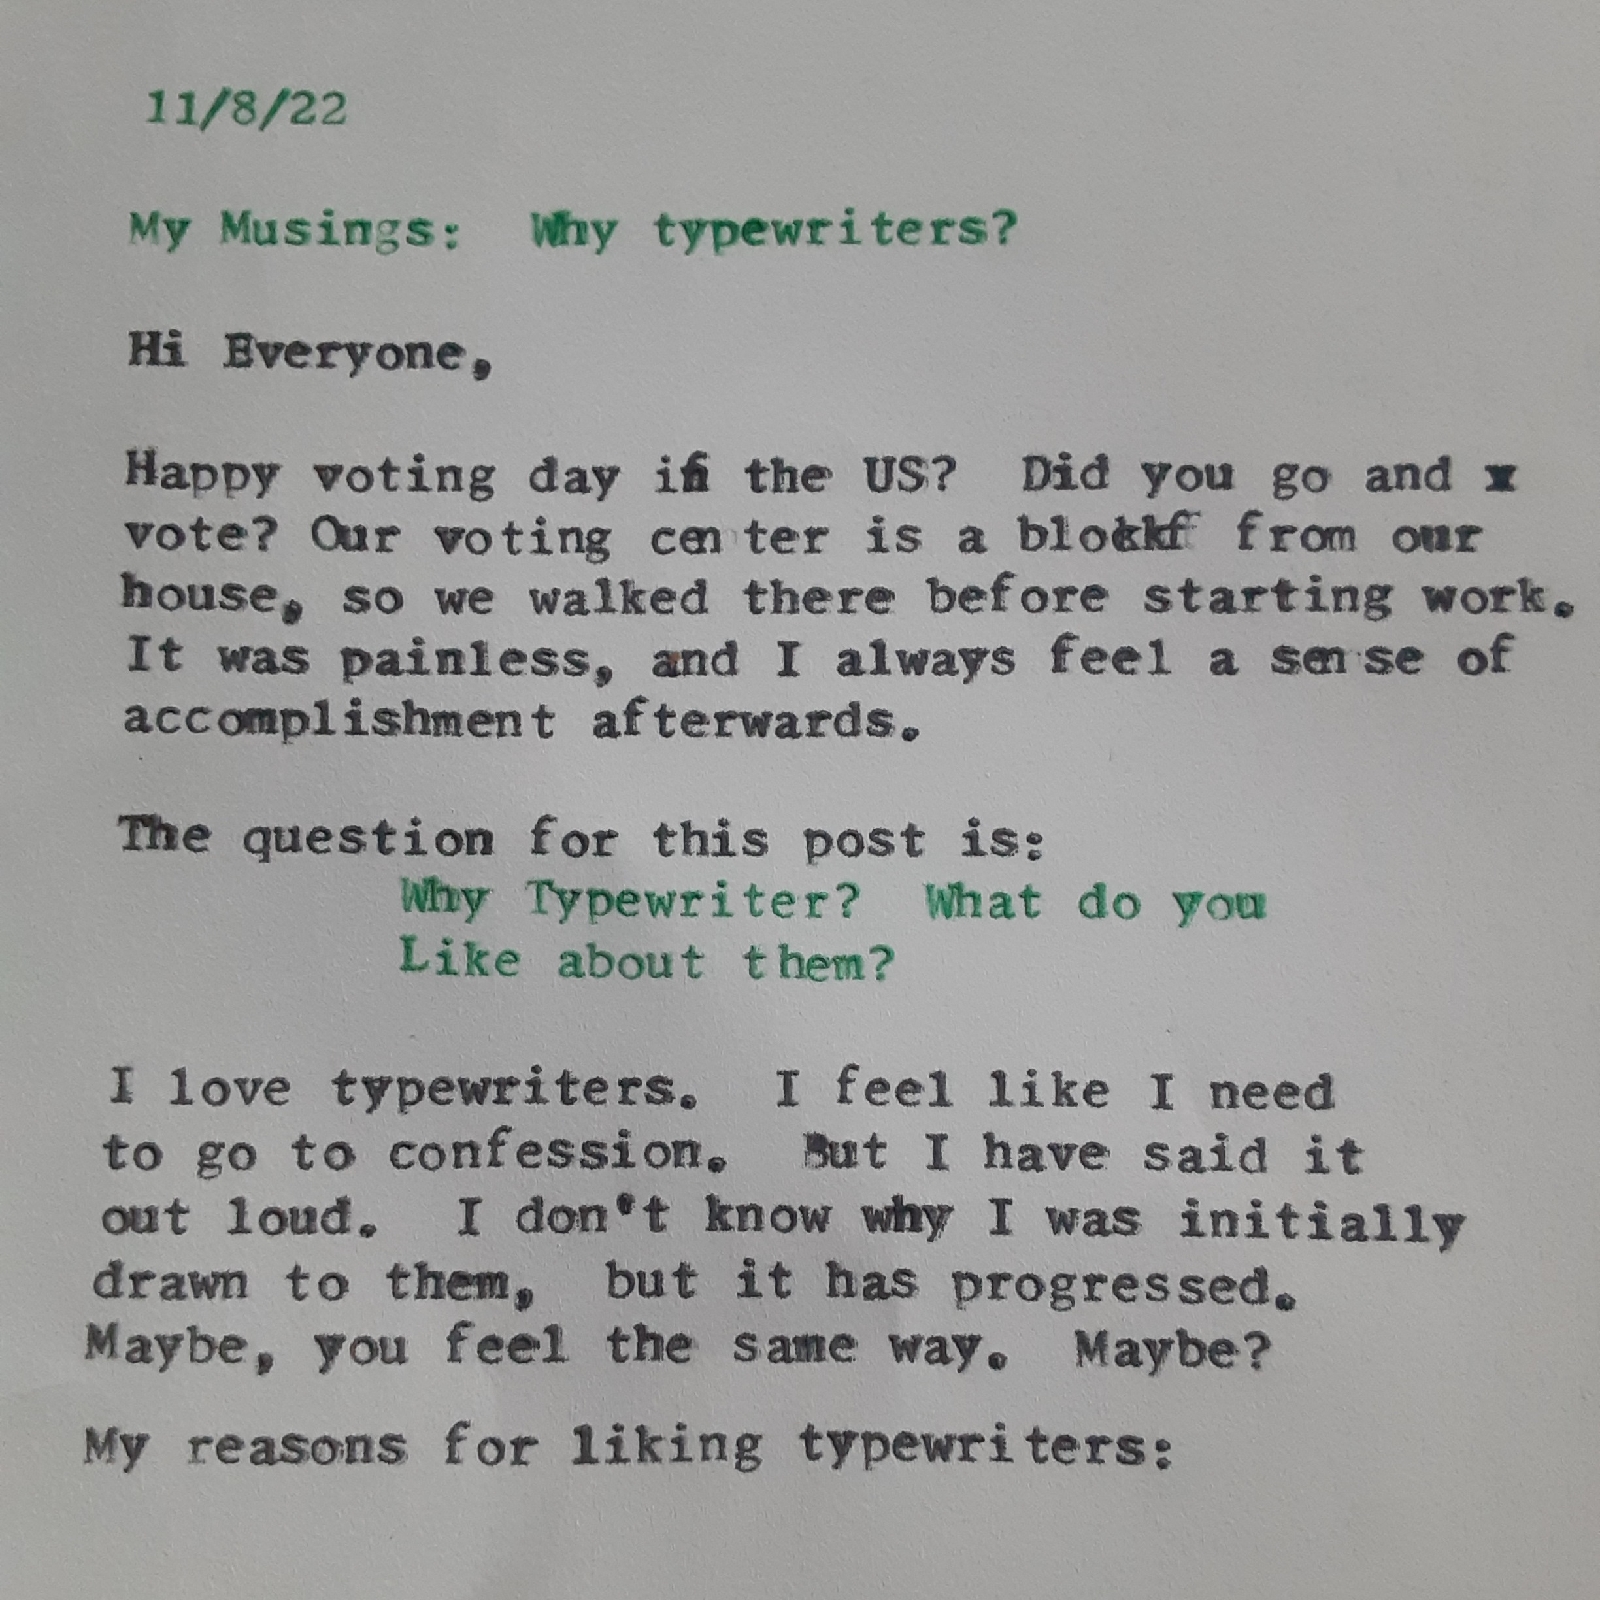 11/8/22
My Musings:  Why typewriters?
Hi Everyone,
Happy voting day in the US?  Did you go and x
vote? Our voting cen ter is a block from our
house, so we walked there before starting work.
It was painless, and I always feel a sense of
accomplishment afterwards.
The question for this post is:
Why Typewriter?  What do you
Like about them?
I love typewriters.  I feel like I need
to go to confession.  But I have said it
out loud.  I don't know why I was initially
drawn to them,  but it has progressed.
Maybe, you feel the same way.  Maybe?
My reasons for liking typewriters: